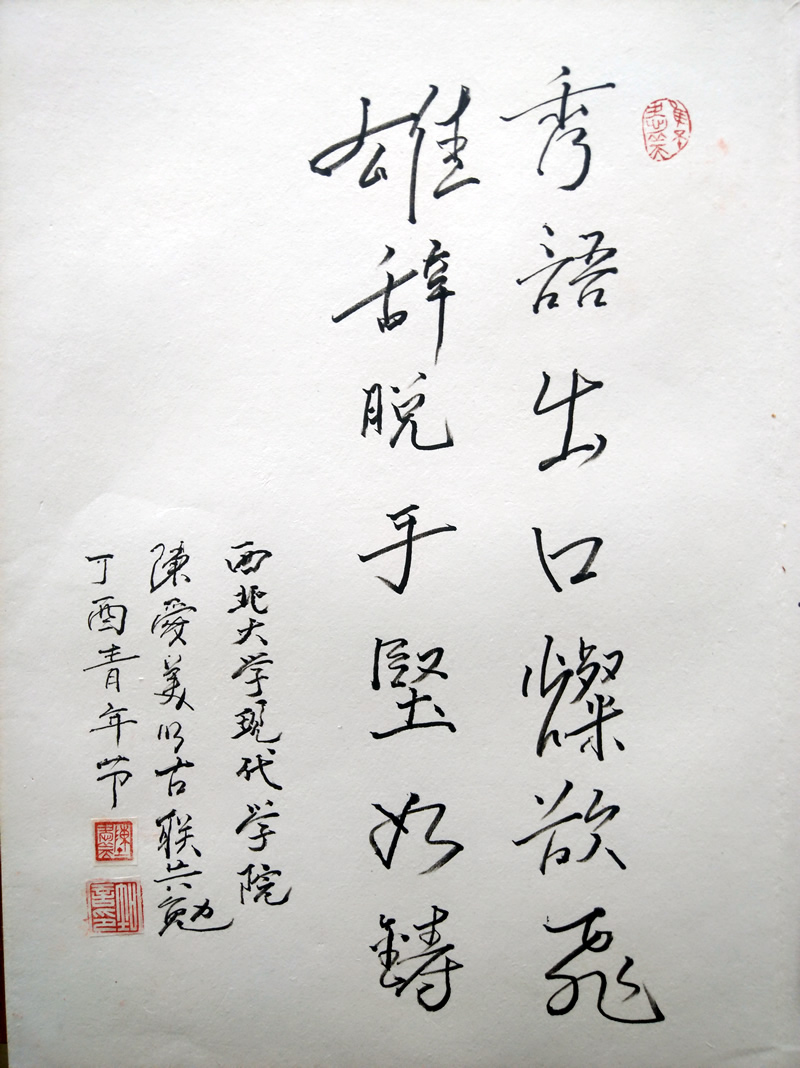 秀語出口燦欲飛
雄辞脱手堅如鑄
西北大学現代学院
陳愛美以古联共勉
丁酉青年节